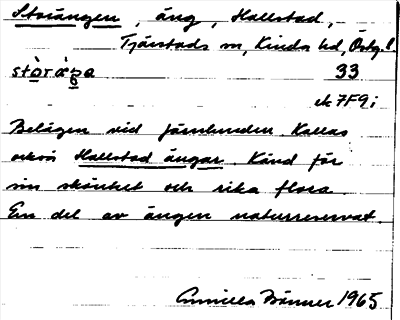 Storängen, äng, Hallstad,
Tjärstads sn, Kinda hd, Östg. l.
33
ek 7F9i
Belägen vid Järnlunden. Kallas
också Hallstad ängar. Känd för
sin skönhet och rika flora.
En del av ängen naturreservat.
1965